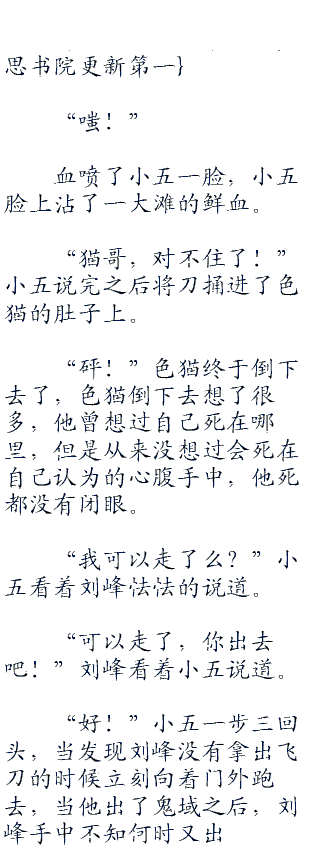 思书院更新第一}
“嗤！”
血喷了小五一脸，小五
脸上沾了一大滩的鲜血。
“猫哥，对不住了！”
小五说完之后将刀捅进了色
猫的肚子上。
“砰！”色猫终于倒下
去了，色猫倒下去想了很
多，他曾想过自己死在哪
里，但是从来没想过会死在
自己认为的心腹手中，他死
都没有闭眼。
“我可以走了么？”小
五看着刘峰怯怯的说道。
“可以走了，你出去
吧！”刘峰看着小五说道。
“好！”小五一步三回
头，当发现刘峰没有拿出飞
刀的时候立刻向着门外跑
去，当他出了鬼域之后，刘
峰手中不知何时又出